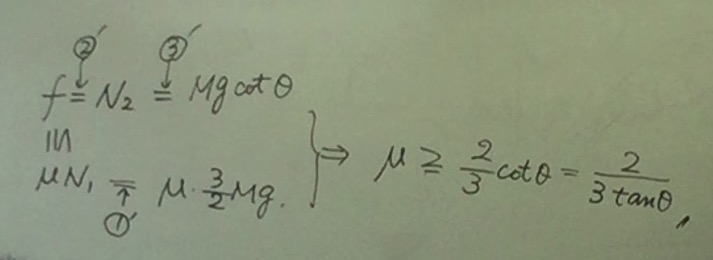 ②′ ③′
f = N₂ = Mg cot θ
≦
μN₁ = μ · 3/2 Mg.
①′
⇒ μ ≧ 2/3 cot θ = 2/(3 tan θ),